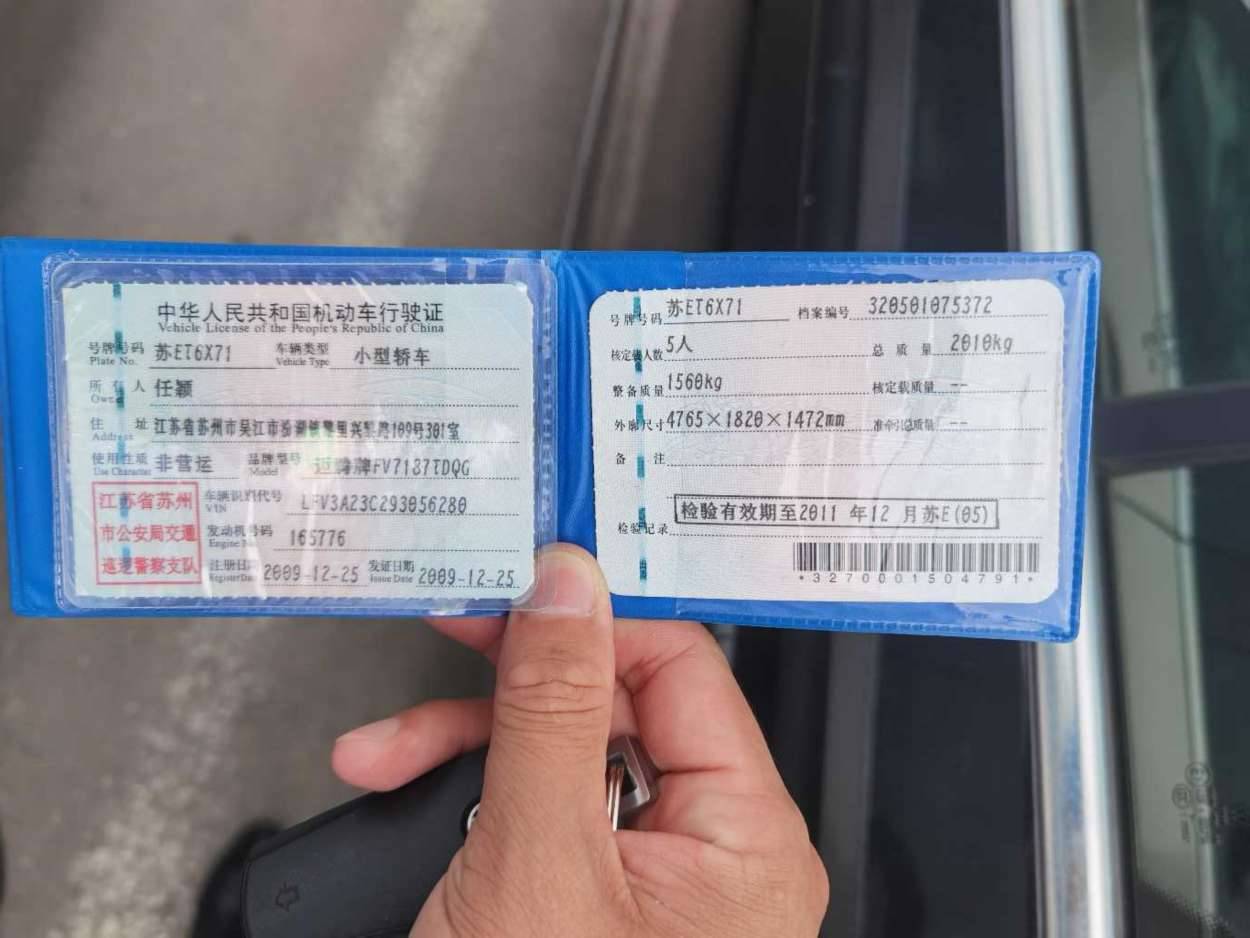 中华人民共和国机动车行驶证
Vehicle License of the People's Republic of China
号牌号码 苏ET6X71 车辆类型 小型轿车
Plate No. Vehicle Type
所有人 任颖
Owner
住址 江苏省苏州市吴江市汾湖镇黎里兴黎路109号301室
Address
使用性质 非营运 品牌型号 迈腾牌FV7187TDQG
Use Character Model
江苏省苏州
市公安局交通
巡逻警察支队
车辆识别代号 LFV3A23C293056280
VIN
发动机号码 165776
Engine No.
注册日期 2009-12-25 发证日期 2009-12-25
Register Date Issue Date
号牌号码 苏ET6X71 档案编号 320501075372
核定载人数 5人 总质量 2010kg
整备质量 1560kg 核定载质量 --
外廓尺寸 4765×1820×1472mm 准牵引总质量 --
备注
检验记录 检验有效期至2011 年12 月苏E(05)
*3270001504791*